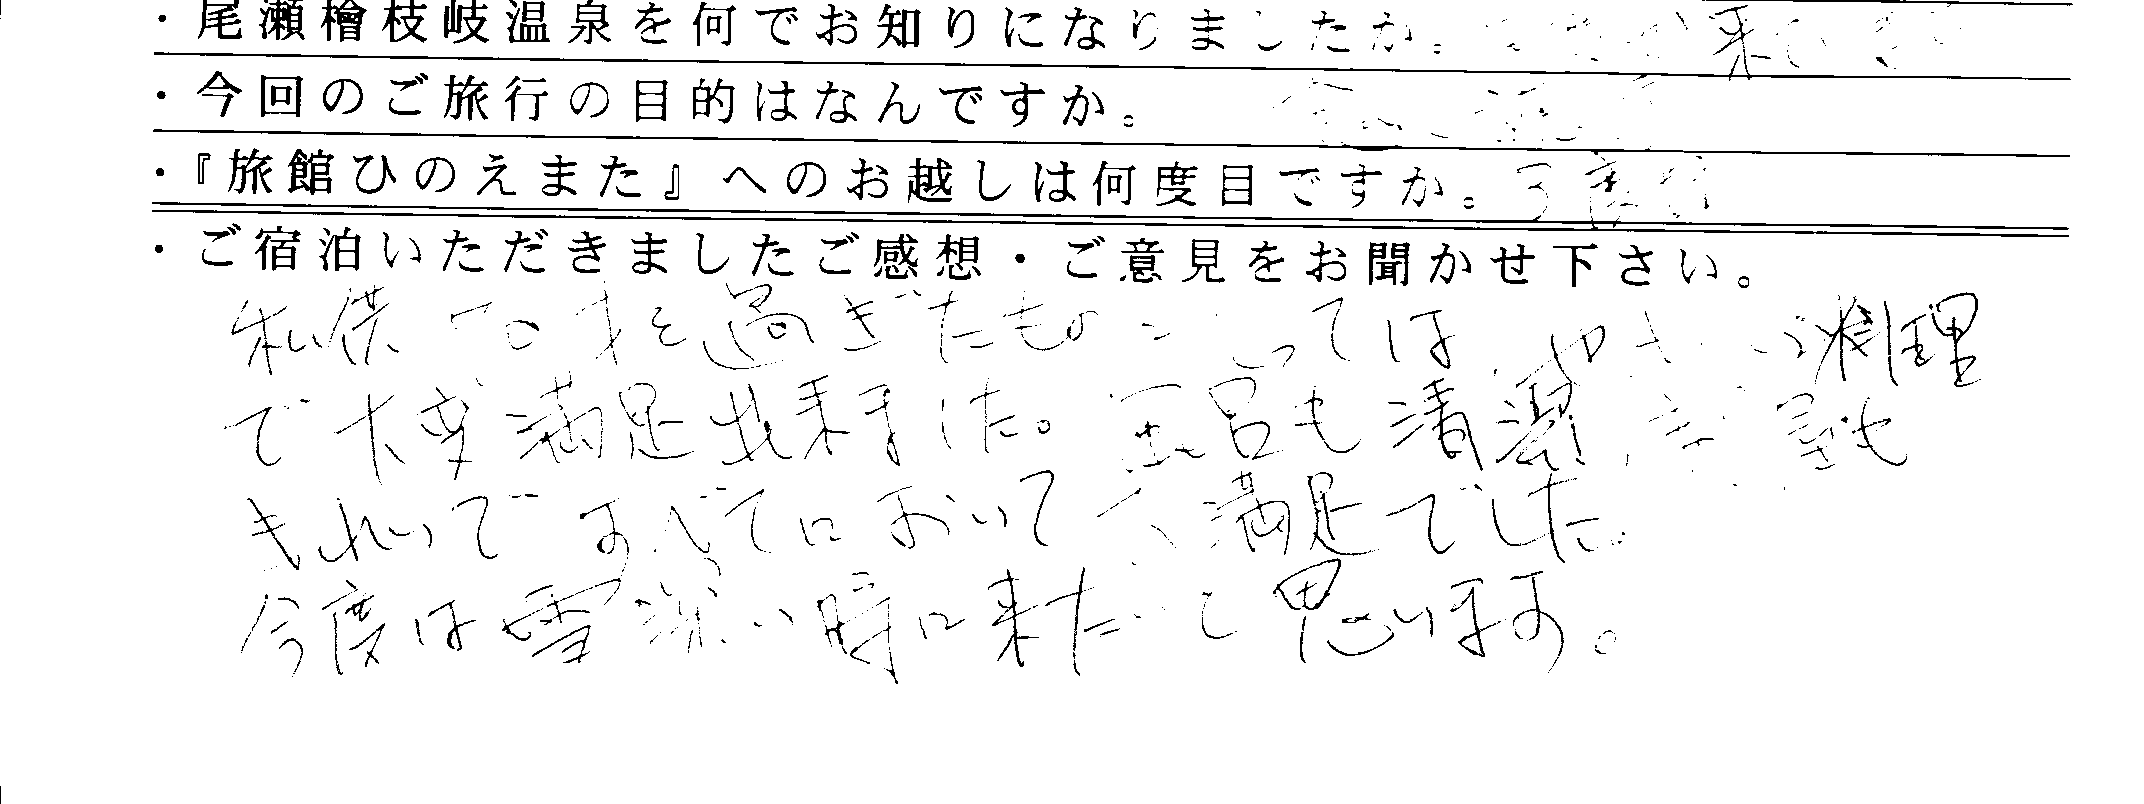 ・尾瀬檜枝岐温泉を何でお知りになりましたか。 来
・今回のご旅行の目的はなんですか。
・『旅館ひのえまた』へのお越しは何度目ですか。 3度目
・ご宿泊いただきましたご感想・ご意見をお聞かせ下さい。
私供 70才を過ぎたもの っては 料理
で大変満足出来ました。風呂も清潔 部屋も
きれいですべてにおいて大満足でした。
今度は雪深い時に来たいと思います。